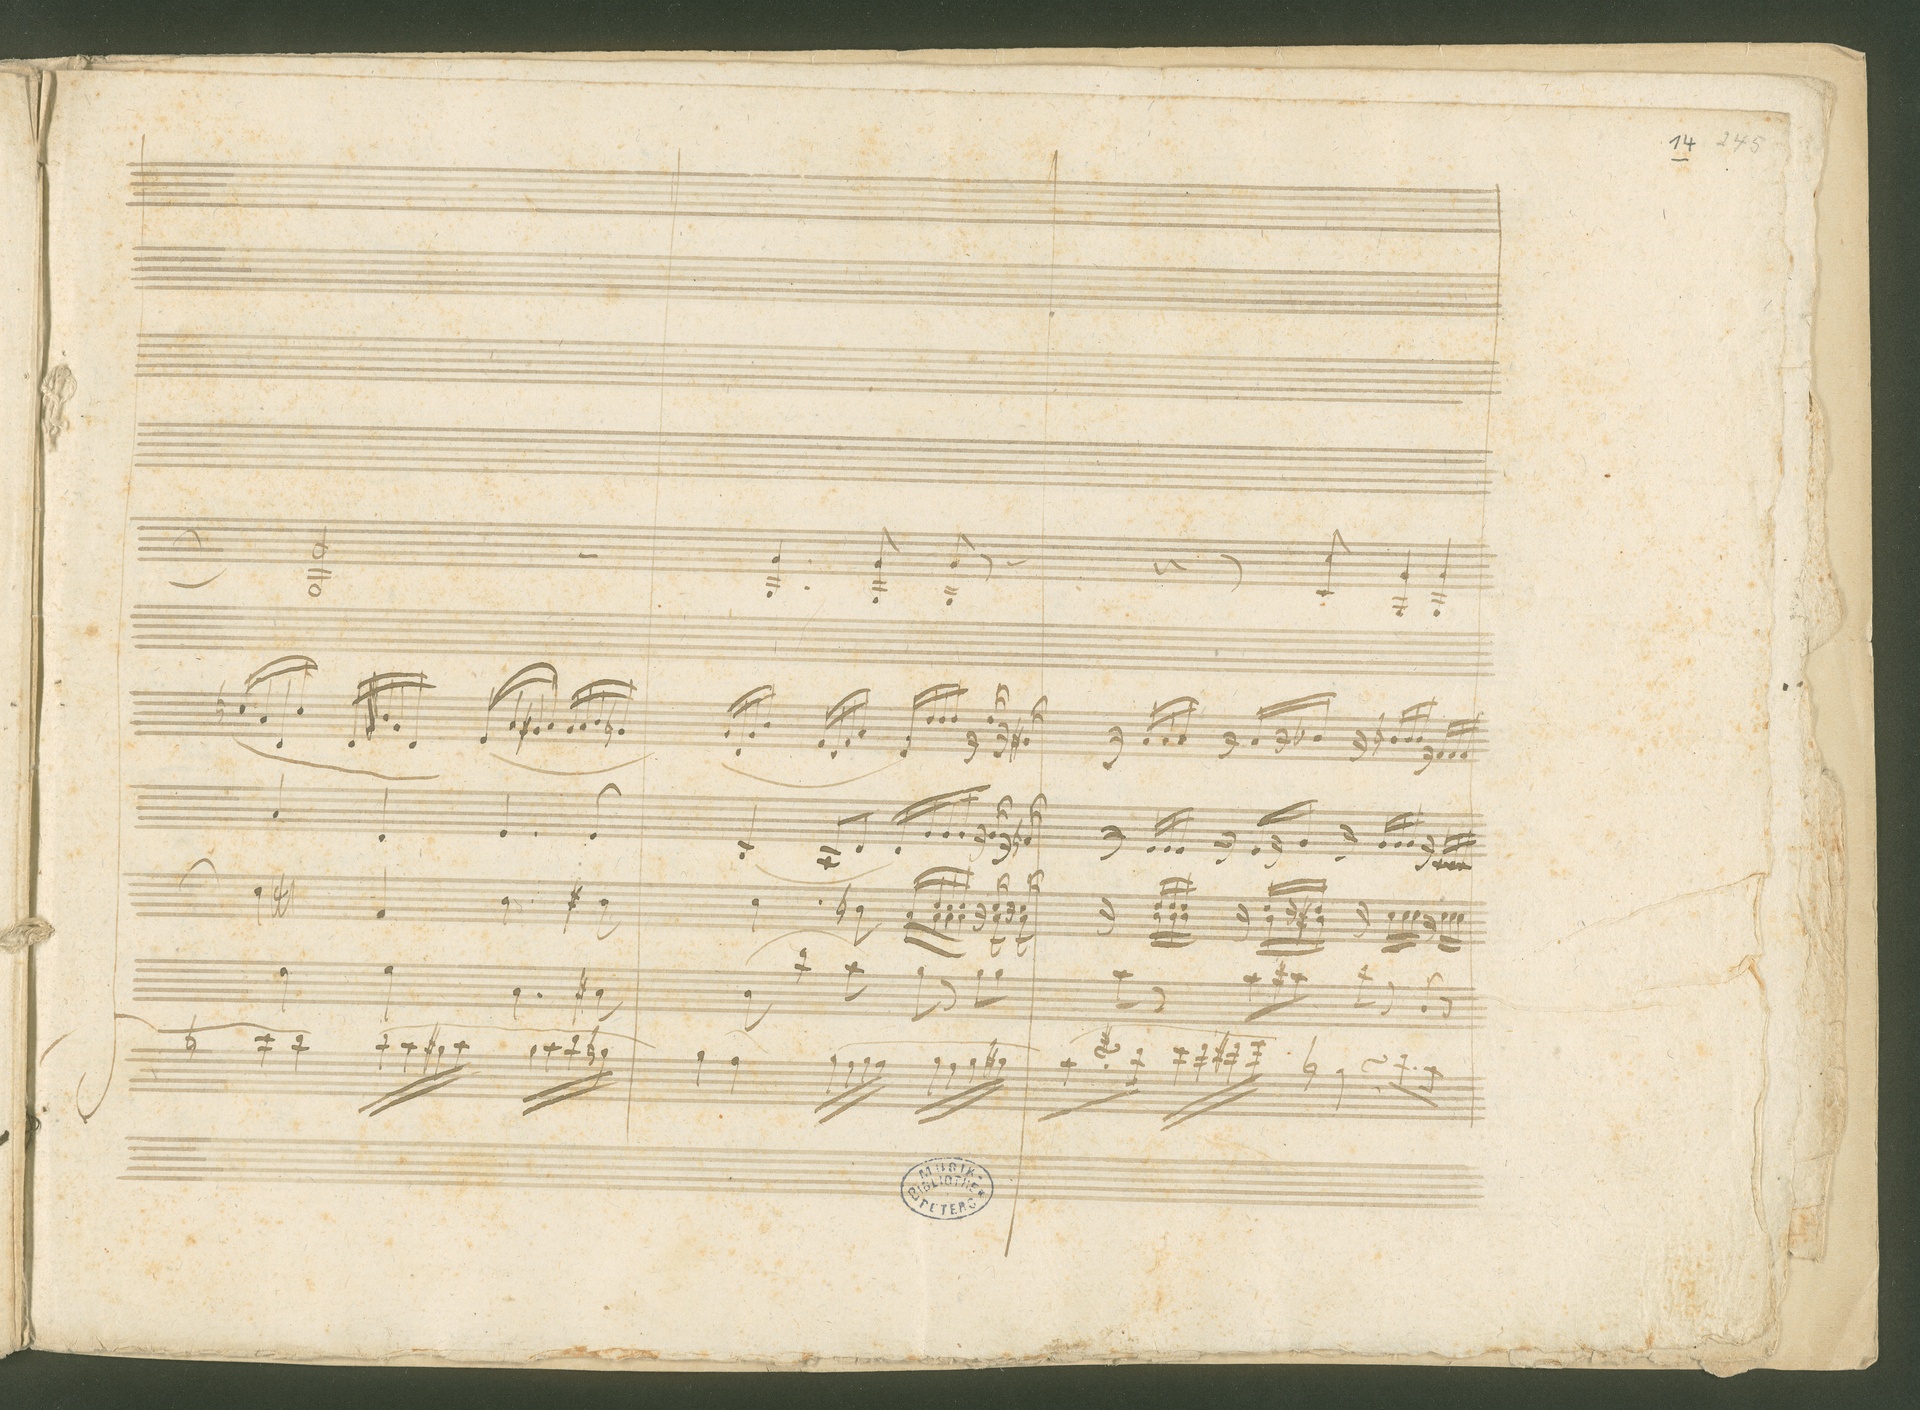 14 245
MUSIK-
BIBLIOTHEK
PETERS